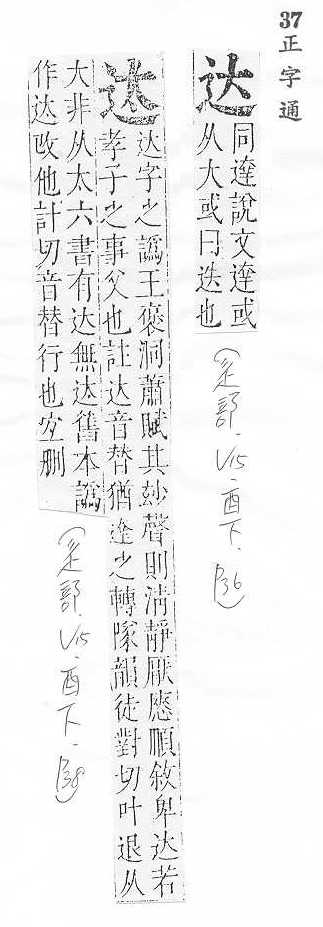 37 正字通
达 同達說文達或
从大或曰迭也
(辵部.V15.酉下.P36)
迏 达字之譌王褒洞蕭賦其玅聲則清靜厭順敘卑达若
孝子之事父也註达音替猶達之轉隊韻徒對切叶退从
大非从太六書有达無迏舊本譌
作迏改他計切音替行也宐刪
(辵部.V15.酉下.P38)